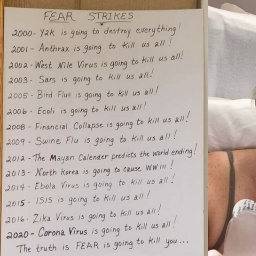 FEAR STRIKES
2000- Y2k is going to destroy everything!
2001- Anthrax is going to kill us all!
2002- West Nile Virus is going to kill us all!
2003- Sars is going to kill us all!
2005- Bird Flu is going to kill us all!
2006- Ecoli is going to kill us all!
2008- Financial Collapse is going to kill us all!
2009- Swine Flu is going to kill us all!
2012- The Mayan Calender predicts the world ending!
2013- North Korea is going to cause WW III!
2014- Ebola Virus is going to kill us all!
2015- ISIS is going to kill us all!
2016- Zika Virus is going to kill us all!
2020- Corona Virus is going to kill us all!
The truth is FEAR is going to kill you...